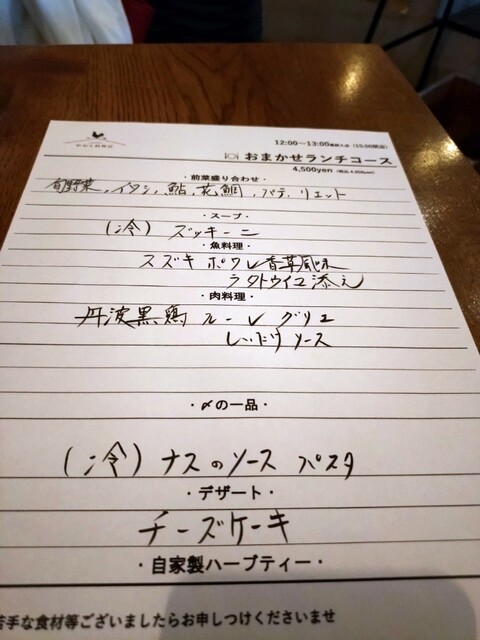 12:00〜13:00最終入店 (15:00閉店)
おまかせランチコース
4,500yen (税込 4,950yen)
・前菜盛り合わせ・
旬野菜、イワシ、鮎、花鯛、パテ、リエット
・スープ・
(冷) ズッキーニ
・魚料理・
スズキ ポワレ 香草風味
ラタトウイユ添え
・肉料理・
丹波黒鶏 ルーレ グリエ
ソース
・〆の一品・
(冷) ナスのソース パスタ
・デザート・
チーズケーキ
・自家製ハーブティー・
苦手な食材等ございましたらお申しつけくださいませ